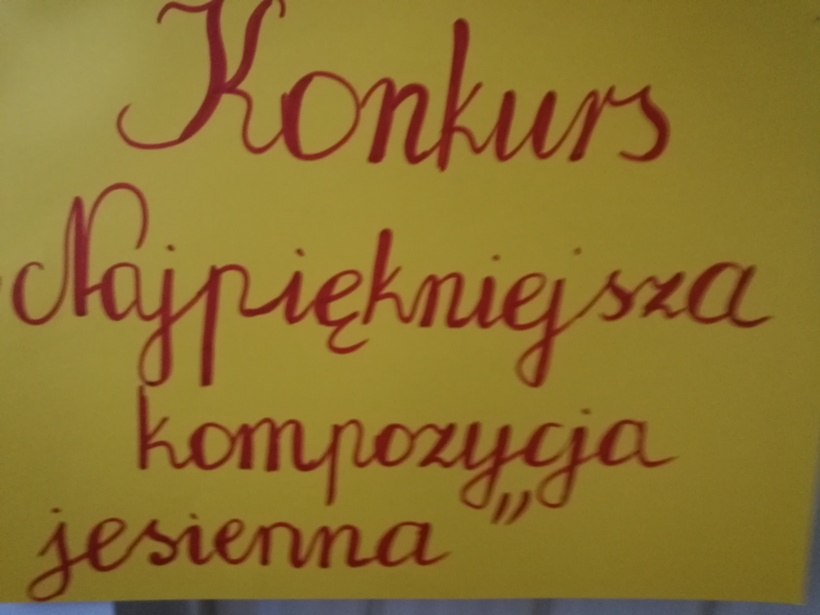 Konkurs
Najpiękniejsza
kompozycja
jesienna”